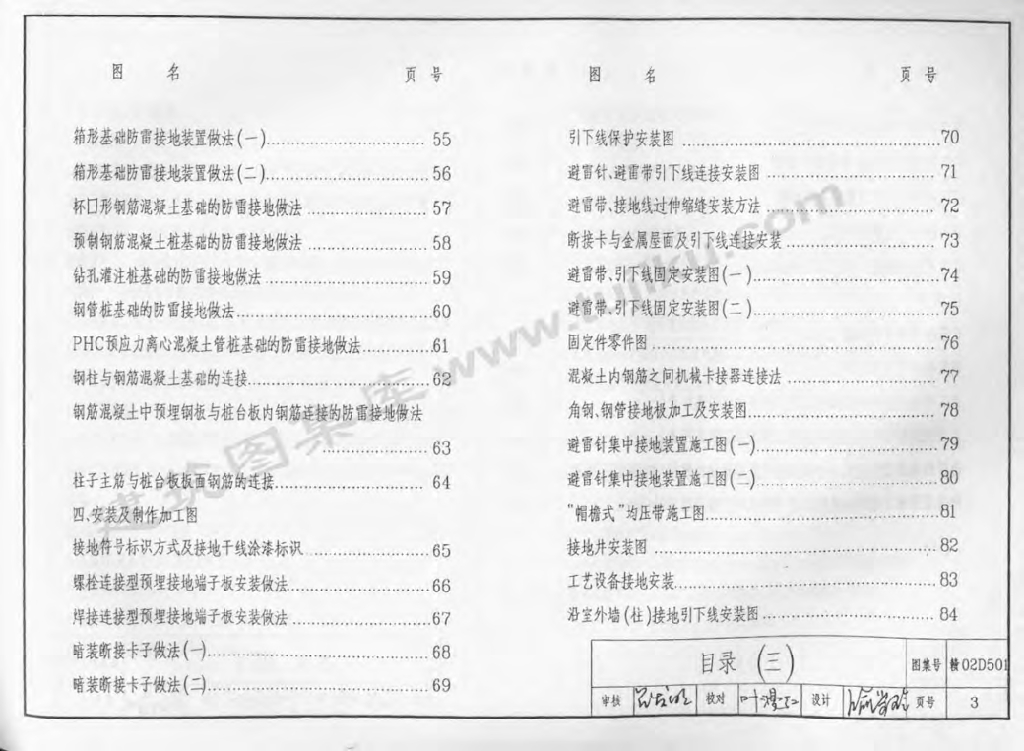 图 名 页 号
箱形基础防雷接地装置做法(一) 55
箱形基础防雷接地装置做法(二) 56
杯口形钢筋混凝土基础的防雷接地做法 57
预制钢筋混凝土桩基础的防雷接地做法 58
钻孔灌注桩基础的防雷接地做法 59
钢管桩基础的防雷接地做法 60
PHC预应力离心混凝土管桩基础的防雷接地做法 61
钢柱与钢筋混凝土基础的连接 62
钢筋混凝土中预埋钢板与桩台板内钢筋连接的防雷接地做法
63
柱子主筋与桩台板板面钢筋的连接 64
四、安装及制作加工图
接地符号标识方式及接地干线涂漆标识 65
螺栓连接型预埋接地端子板安装做法 66
焊接连接型预埋接地端子板安装做法 67
暗装断接卡子做法(一) 68
暗装断接卡子做法(二) 69
图 名 页 号
引下线保护安装图 70
避雷针、避雷带引下线连接安装图 71
避雷带、接地线过伸缩缝安装方法 72
断接卡与金属屋面及引下线连接安装 73
避雷带、引下线固定安装图(一) 74
避雷带、引下线固定安装图(二) 75
固定件零件图 76
混凝土内钢筋之间机械卡接器连接法 77
角钢、钢管接地极加工及安装图 78
避雷针集中接地装置施工图(一) 79
避雷针集中接地装置施工图(二) 80
“帽檐式”均压带施工图 81
接地井安装图 82
工艺设备接地安装 83
沿室外墙(柱)接地引下线安装图 84
目录 (三) 图集号 赣02D501
审核 校对 设计 页号 3
建筑图集库 www.tujiku.com